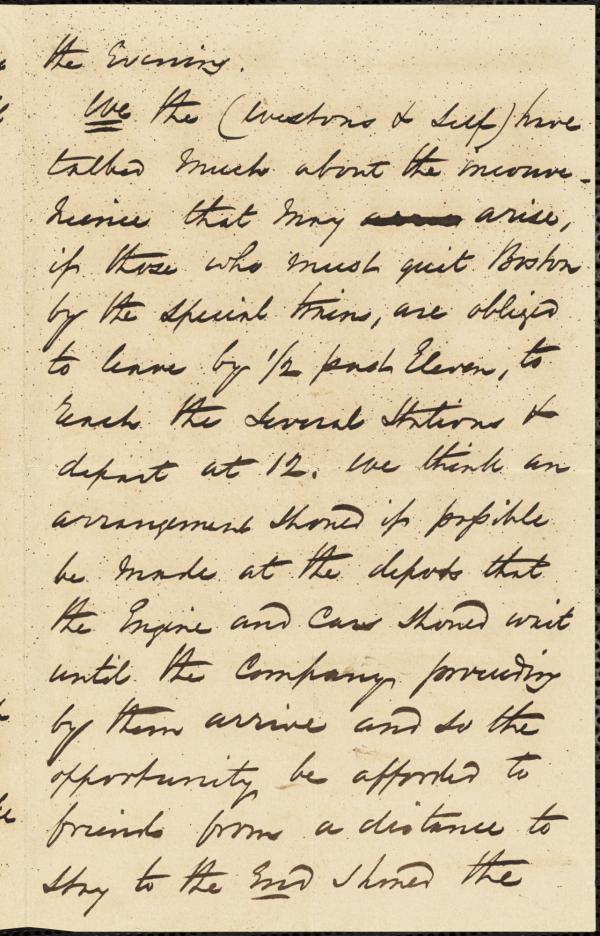 the Evening.
We the (Westons & Self) have
talked much about the inconve-
nience that may arise,
if those who must quit Boston
by the special trains, are obliged
to leave by 1/2 past Eleven, to
reach the several Stations &
depart at 12. We think an
arrangement should if possible
be made at the depots that
the Engine and Cars should wait
until the Company proceeding
by them arrive and so the
opportunity be afforded to
friends from a distance to
stay to the End should the